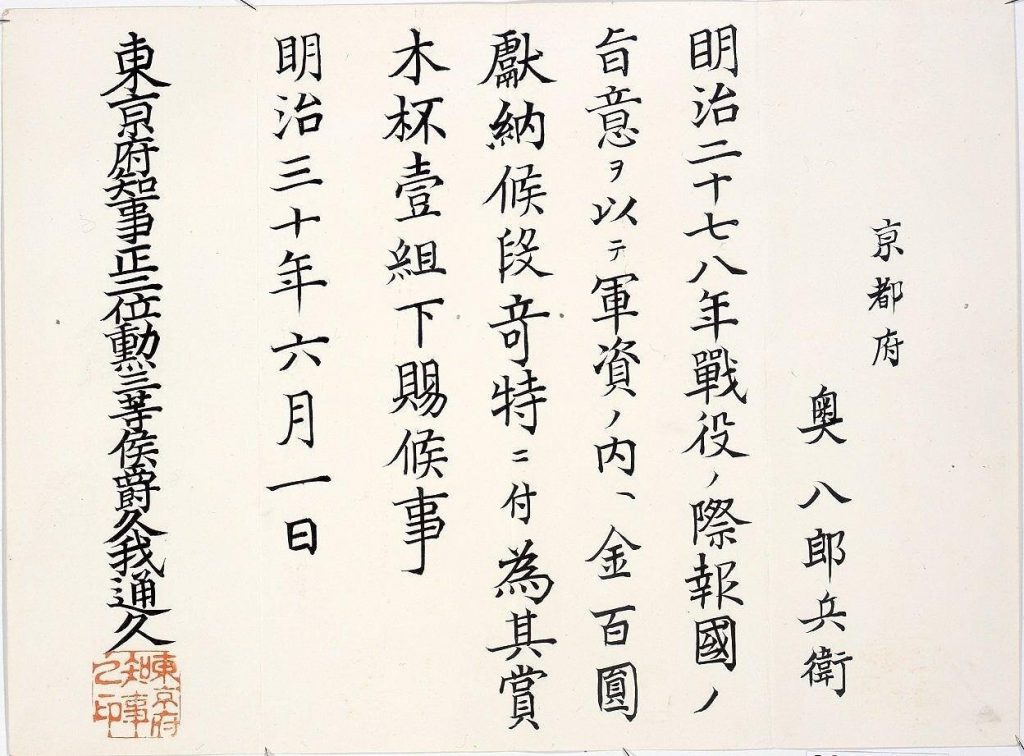 京都府
奥八郎兵衞
明治二十七八年戰役ノ際報國ノ
旨意ヲ以テ軍資ノ内ヘ金百圓
獻納候段奇特ニ付為其賞
木杯壹組下賜候事
明治三十年六月一日
東京府知事正三位勲三等侯爵久我通久
東京府
知事
之印